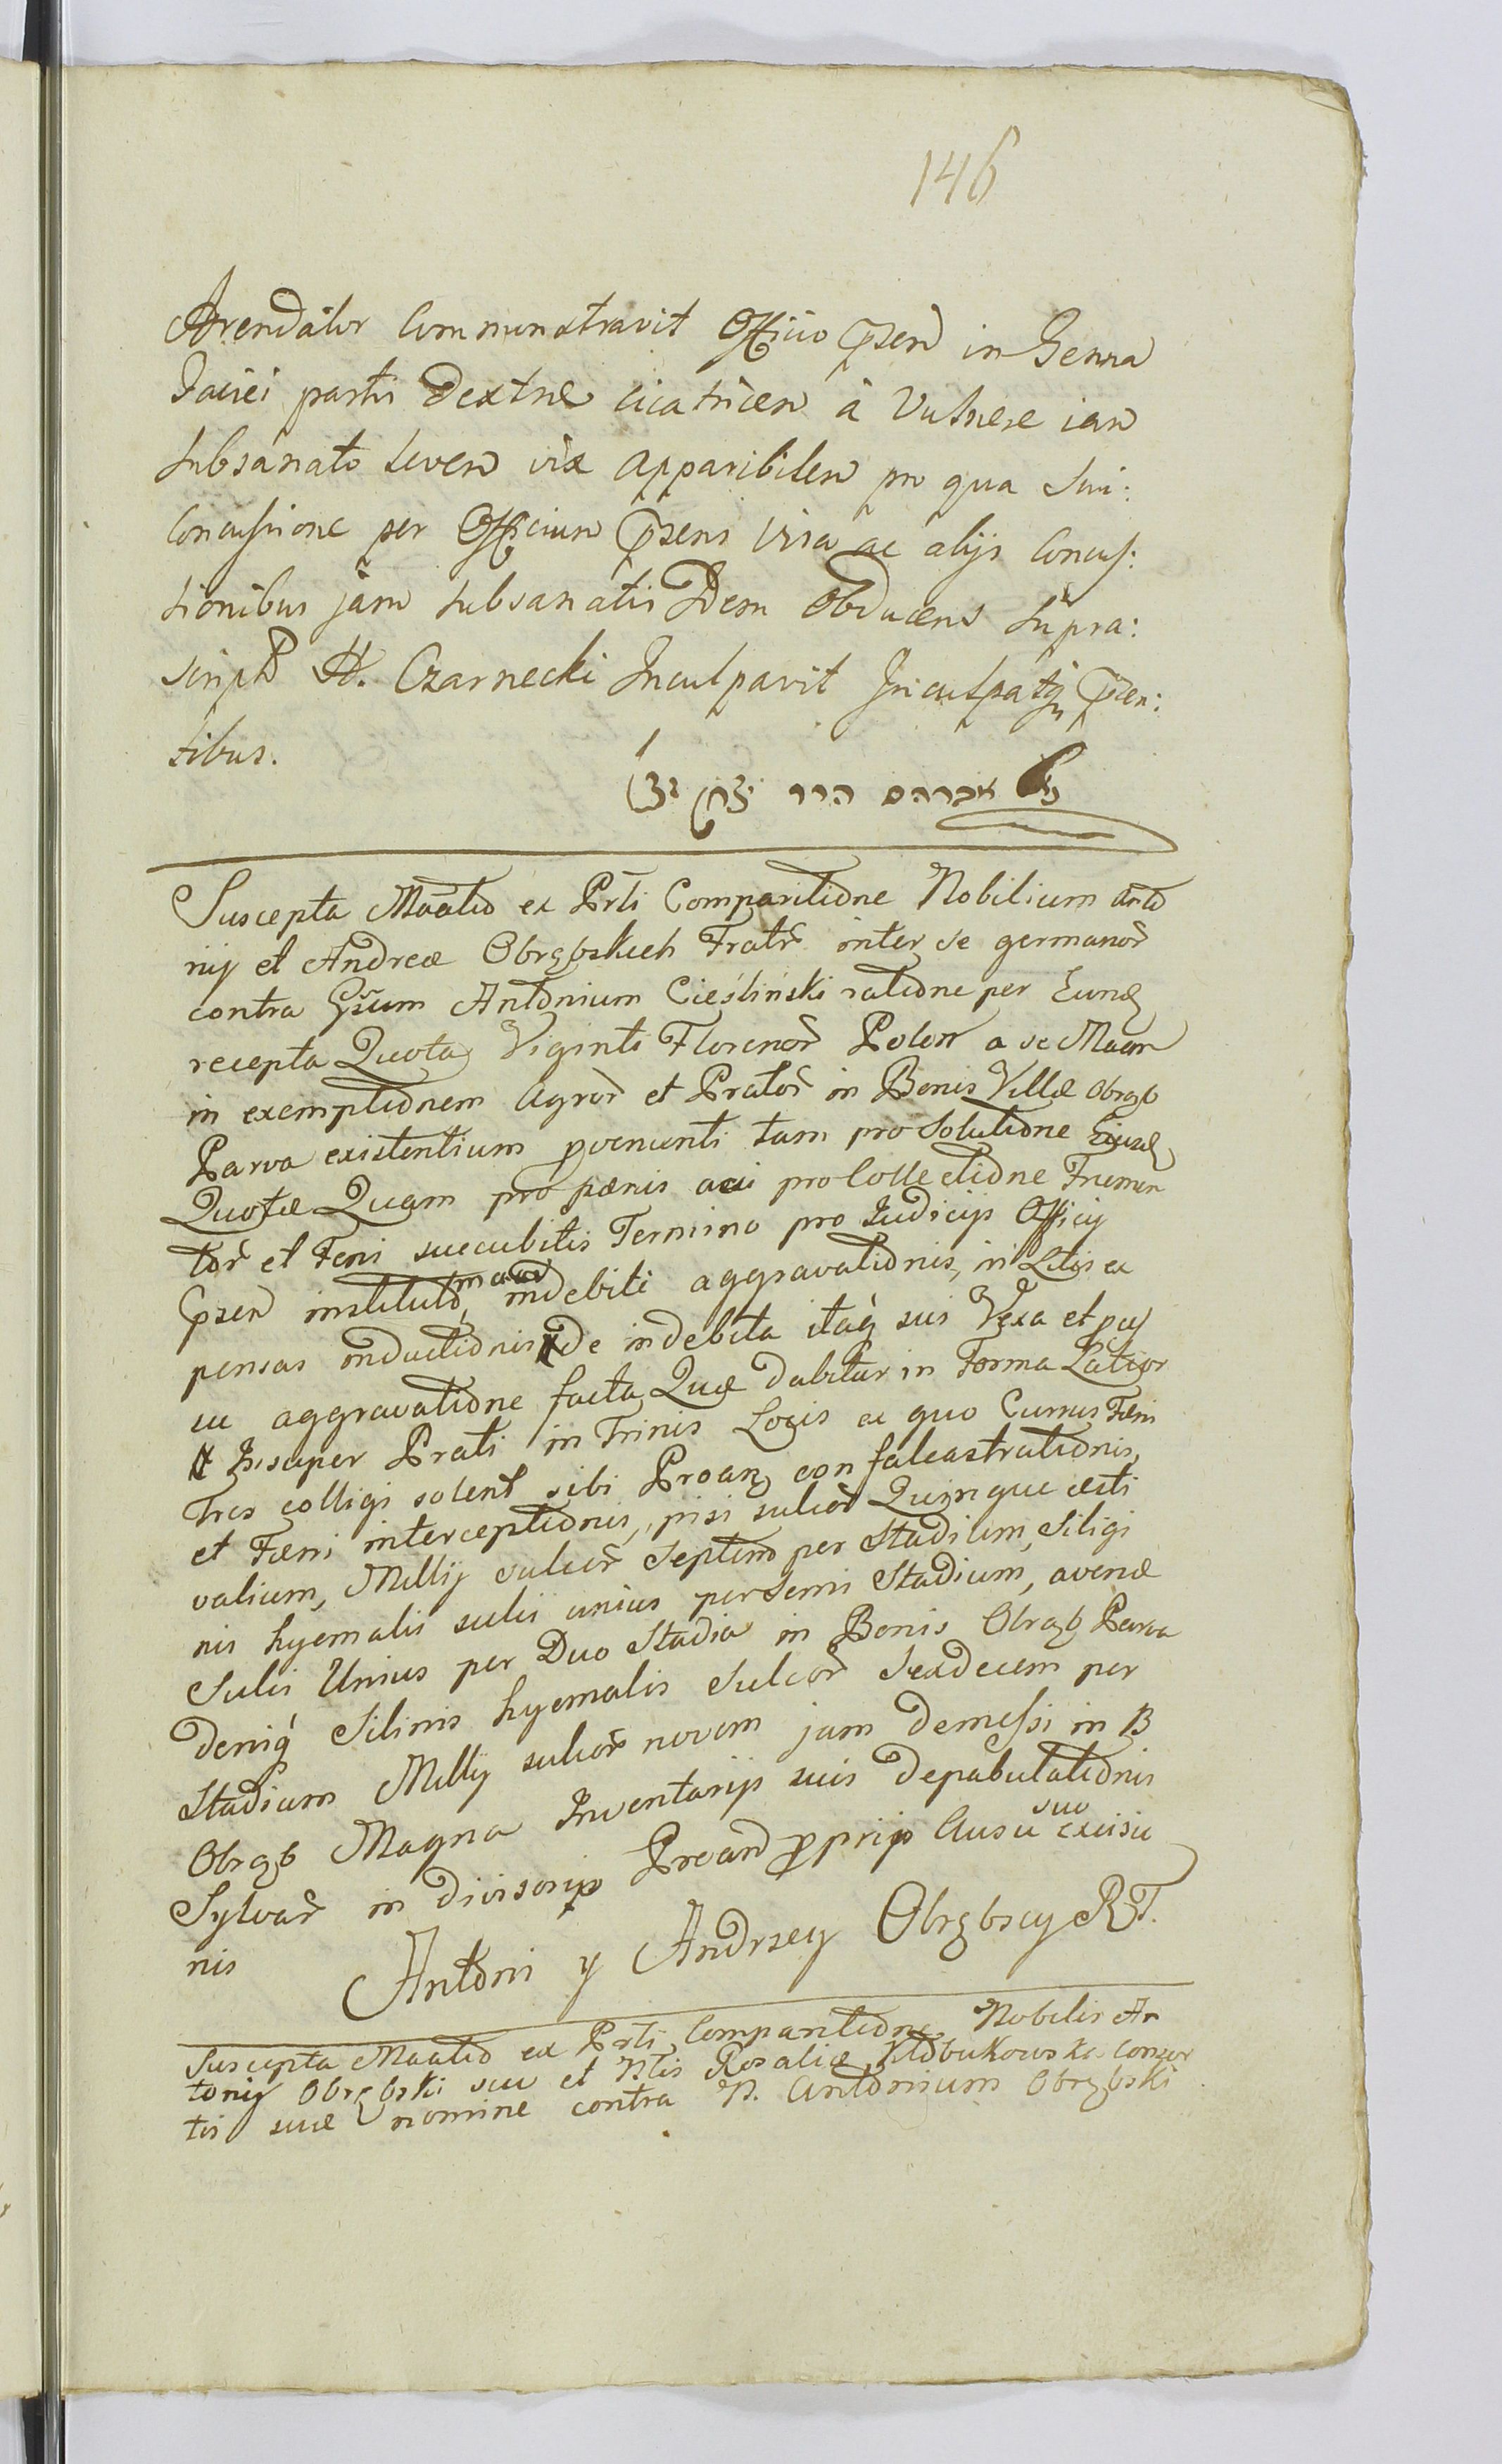 146
Arendator Commonstravit Officio pzen in Genna
Faciei partis Dextræ cicatricen a Vulnere ian
subsanato leven vix apparibilen pro qua sivi:
Concussione per Officiun pzens visa ac alijs Concus:
sionibus jam subsanatis Idem Obducens supra:
script H. Czarnecki Inculpavit Inculpatq pzen:
tibus.
אברהם הרר יצחק
Suscepta Maatio ex Prti Comparitione Nobilium Anto
nij et Andreæ Obrębskich Fratr inter se germanor
contra Gsum Antonium Cieśliński ratione per Eund
recepta Quota Viginti Florenor Polon a se Maan
in exemptionem Agror et Prator in Bonis Villæ Obręb
Parva existentium pvenienti tam pro Solutione Eiusd
Quotæ Quam pro pænis aci pro Collectione Frumen
tor et Feni succubitis Termino pro Judicijs Officij
pzen instituto, maan indebiti aggravationis, in Litis ex
pensas inductionis de indebita itaq suis Vexa et pec
cu aggravatione facta Quæ dabitur in Forma Latior
Insuper Prati in Trinis Locis ex quo Currus Fæni
Tres colligi solent sibi Proan con falcastrationis,
et Fæni interceptionis, pisi sulcor Quinque æsti
valium, Millij sulcor Septem per Stadium, Siligi
nis hyemalis sulci unius per semi Stadium, avenæ
Sulci Unius per Duo Stadia in Bonis Obręb Parva
deniq Silinis hyemalis Sulcor Sexdecem per
Stadium Millij sulcor novem jam demessi in B
Obręb Magna Inventarijs suis depabulationis
Sylvar in divisorijs Proand pprijs Ausu suo excisio
nis
Antoni y Andrzey Obrębscy RT.
Suscepta Maatio ex Prti Comparitione Nobilis An
tonij Obrębski suo et Nlis Rosaliæ Kłobukowski Consor
tis suæ nomine contra N. Antonium Obrębski